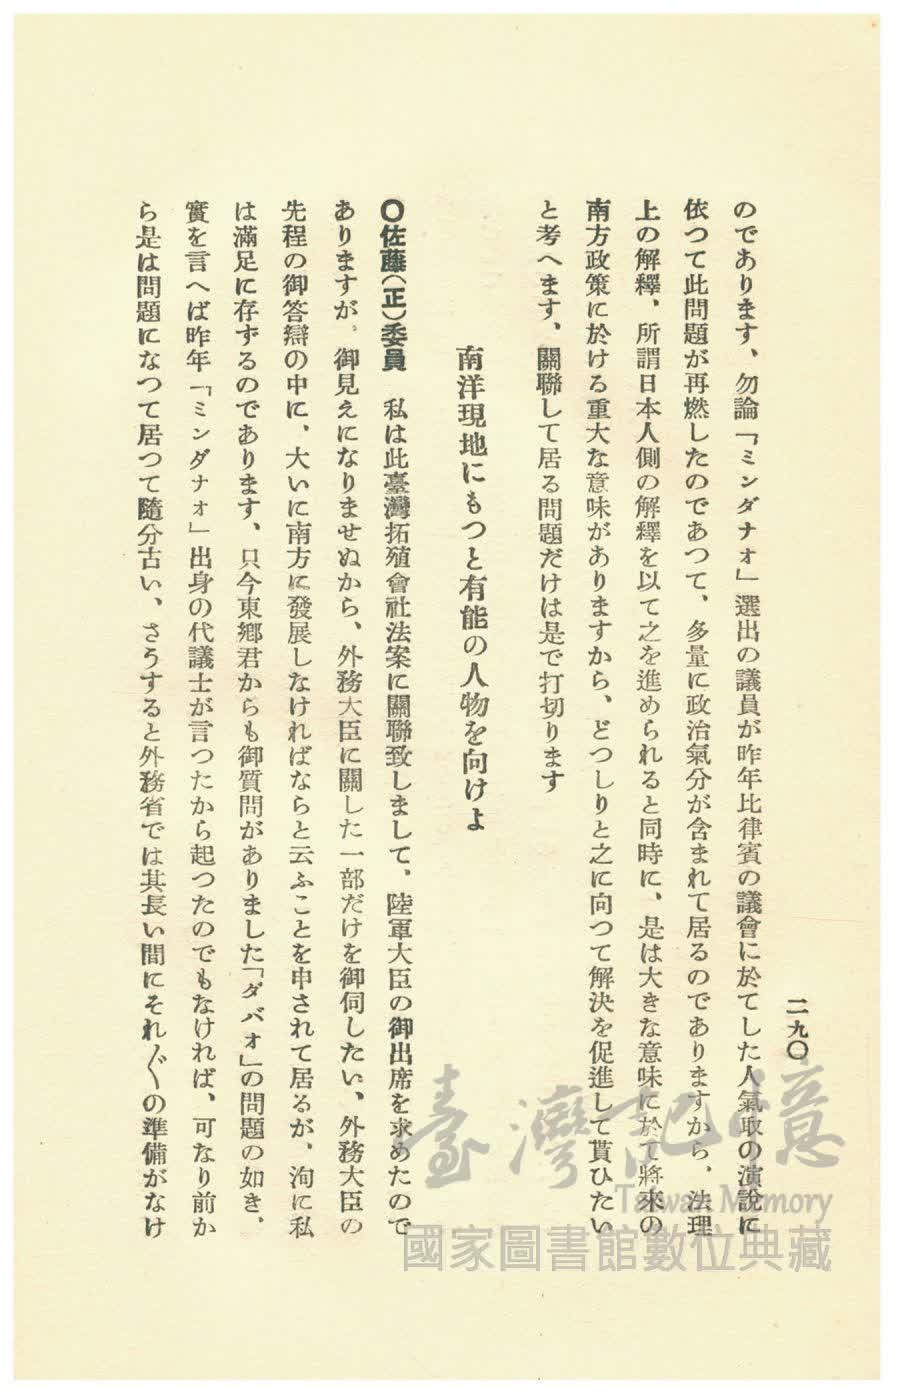 二九〇
のであります、勿論「ミンダナオ」選出の議員が昨年比律賓の議會に於てした人氣取の演說に
依つて此問題が再燃したのであつて、多量に政治氣分が含まれて居るのでありますから、法理
上の解釋、所謂日本人側の解釋を以て之を進められると同時に、是は大きな意味に於て將來の
南方政策に於ける重大な意味がありますから、どつしりと之に向つて解決を促進して貰ひたい
と考へます、關聯して居る問題だけは是で打切ります
南洋現地にもつと有能の人物を向けよ
〇佐藤(正)委員 私は此臺灣拓殖會社法案に關聯致しまして、陸軍大臣の御出席を求めたので
ありますが、御見えになりませぬから、外務大臣に關した一部だけを御伺したい、外務大臣の
先程の御答辯の中に、大いに南方に發展しなければならと云ふことを申されて居るが、洵に私
は滿足に存ずるのであります、只今東鄕君からも御質問がありました「ダバオ」の問題の如き、
實を言へば昨年「ミンダナオ」出身の代議士が言つたから起つたのでもなければ、可なり前か
ら是は問題になつて居つて隨分古い、さうすると外務省では其長い間にそれ〴〵の準備がなけ
臺灣記憶
Taiwan Memory
國家圖書館數位典藏